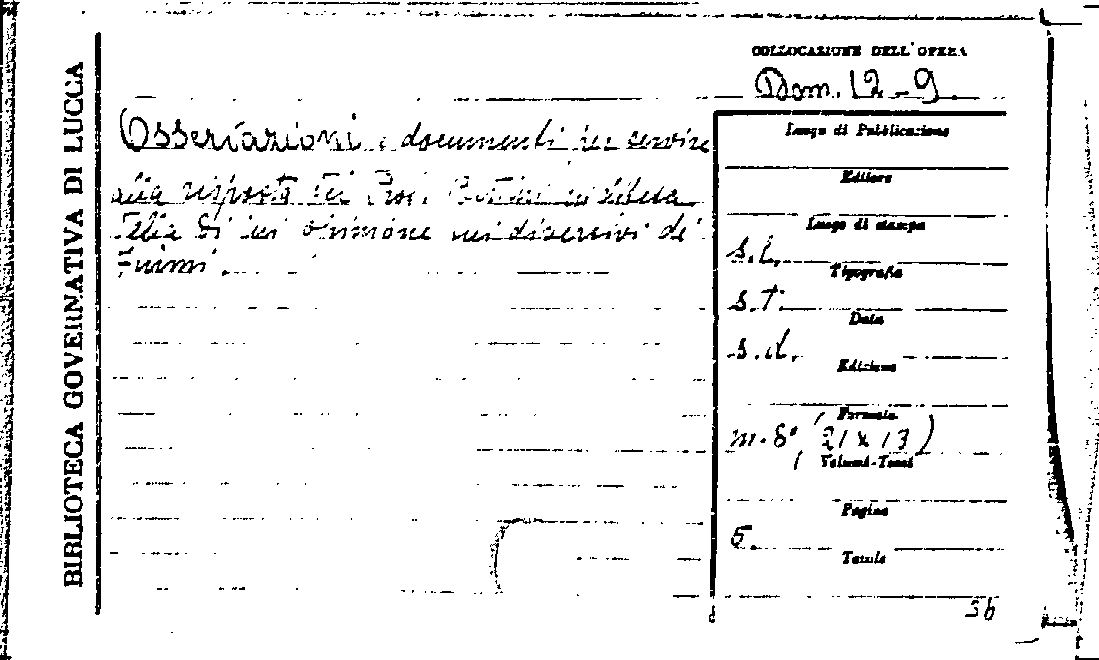 BIBLIOTECA GOVERNATIVA DI LUCCA
COLLOCAZIONE DELL'OPERA
Dom. 12-9.
Osservazioni e documenti per servire
alla risposta del Prof. in difesa
della di lui opinione sui diversivi dei
Fiumi.
Luogo di Pubblicazione
Editore
Luogo di stampa
s.l.
Tipografia
s.t.
Data
s.d.
Edizione
Formato
m.8° (21 x 13)
Volumi-Tomi
Pagine
5.
Tavole
36